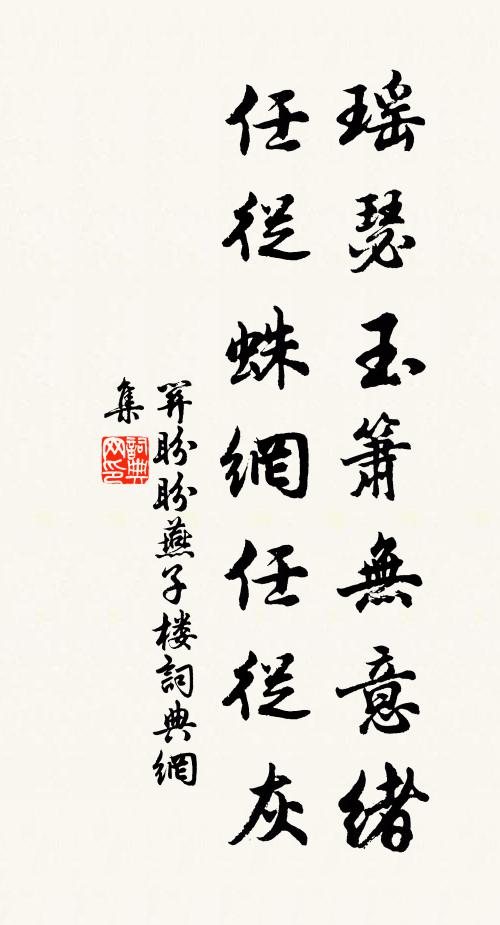 瑶瑟玉箫無意緒
任從蛛網任從灰
關盼盼燕子楼詞典網
集
詞典
网印